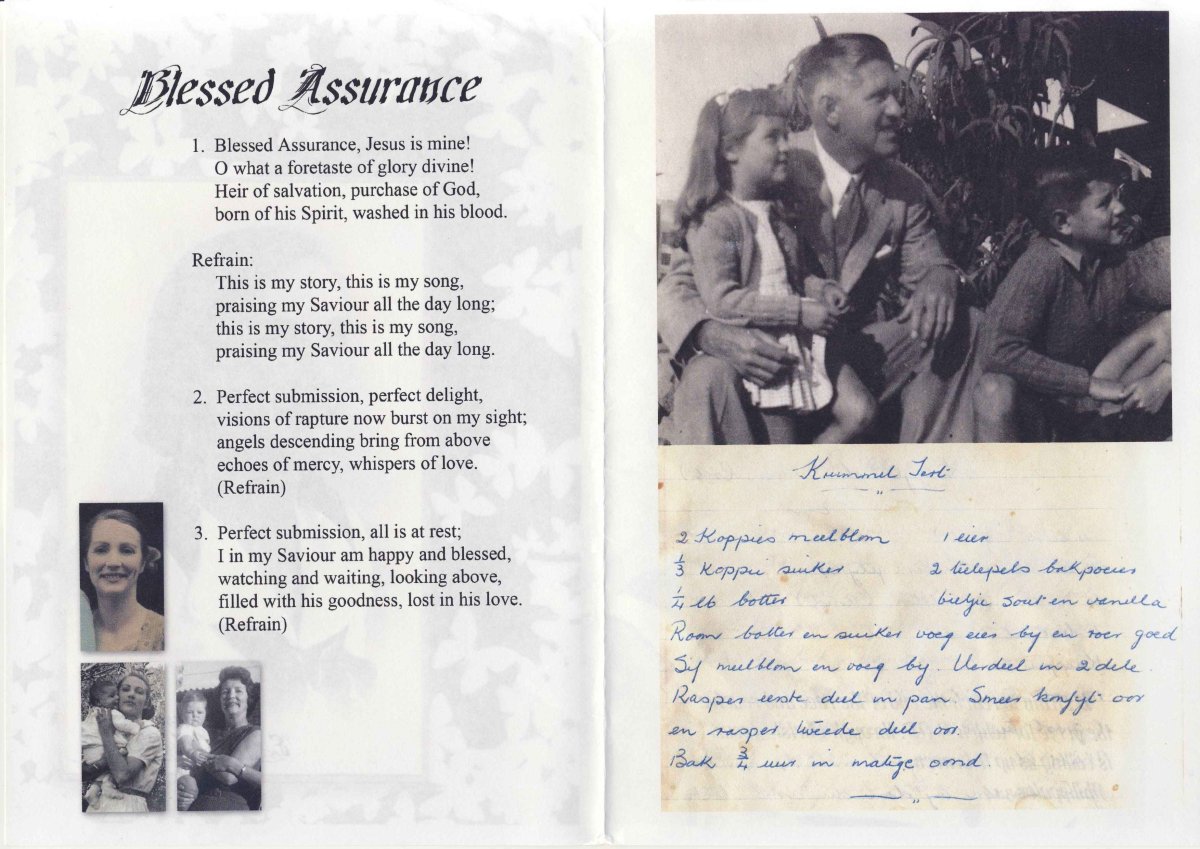 Blessed Assurance
1. Blessed Assurance, Jesus is mine!
O what a foretaste of glory divine!
Heir of salvation, purchase of God,
born of his Spirit, washed in his blood.
Refrain:
This is my story, this is my song,
praising my Saviour all the day long;
this is my story, this is my song,
praising my Saviour all the day long.
2. Perfect submission, perfect delight,
visions of rapture now burst on my sight;
angels descending bring from above
echoes of mercy, whispers of love.
(Refrain)
3. Perfect submission, all is at rest;
I in my Saviour am happy and blessed,
watching and waiting, looking above,
filled with his goodness, lost in his love.
(Refrain)
Krummel Tert
2 Koppies meelblom 1 eier
1/3 Koppie suiker 2 telepels bakpoeier
1/4 lb botter bietjie sout en vanella
Room botter en suiker voeg eier by en roer goed
Sif meelblom en voeg by. Verdeel in 2 dele.
Rasper eerste deel in pan. Smeer konfyt oor
en rasper tweede deel oor.
Bak 3/4 uur in matige oond.